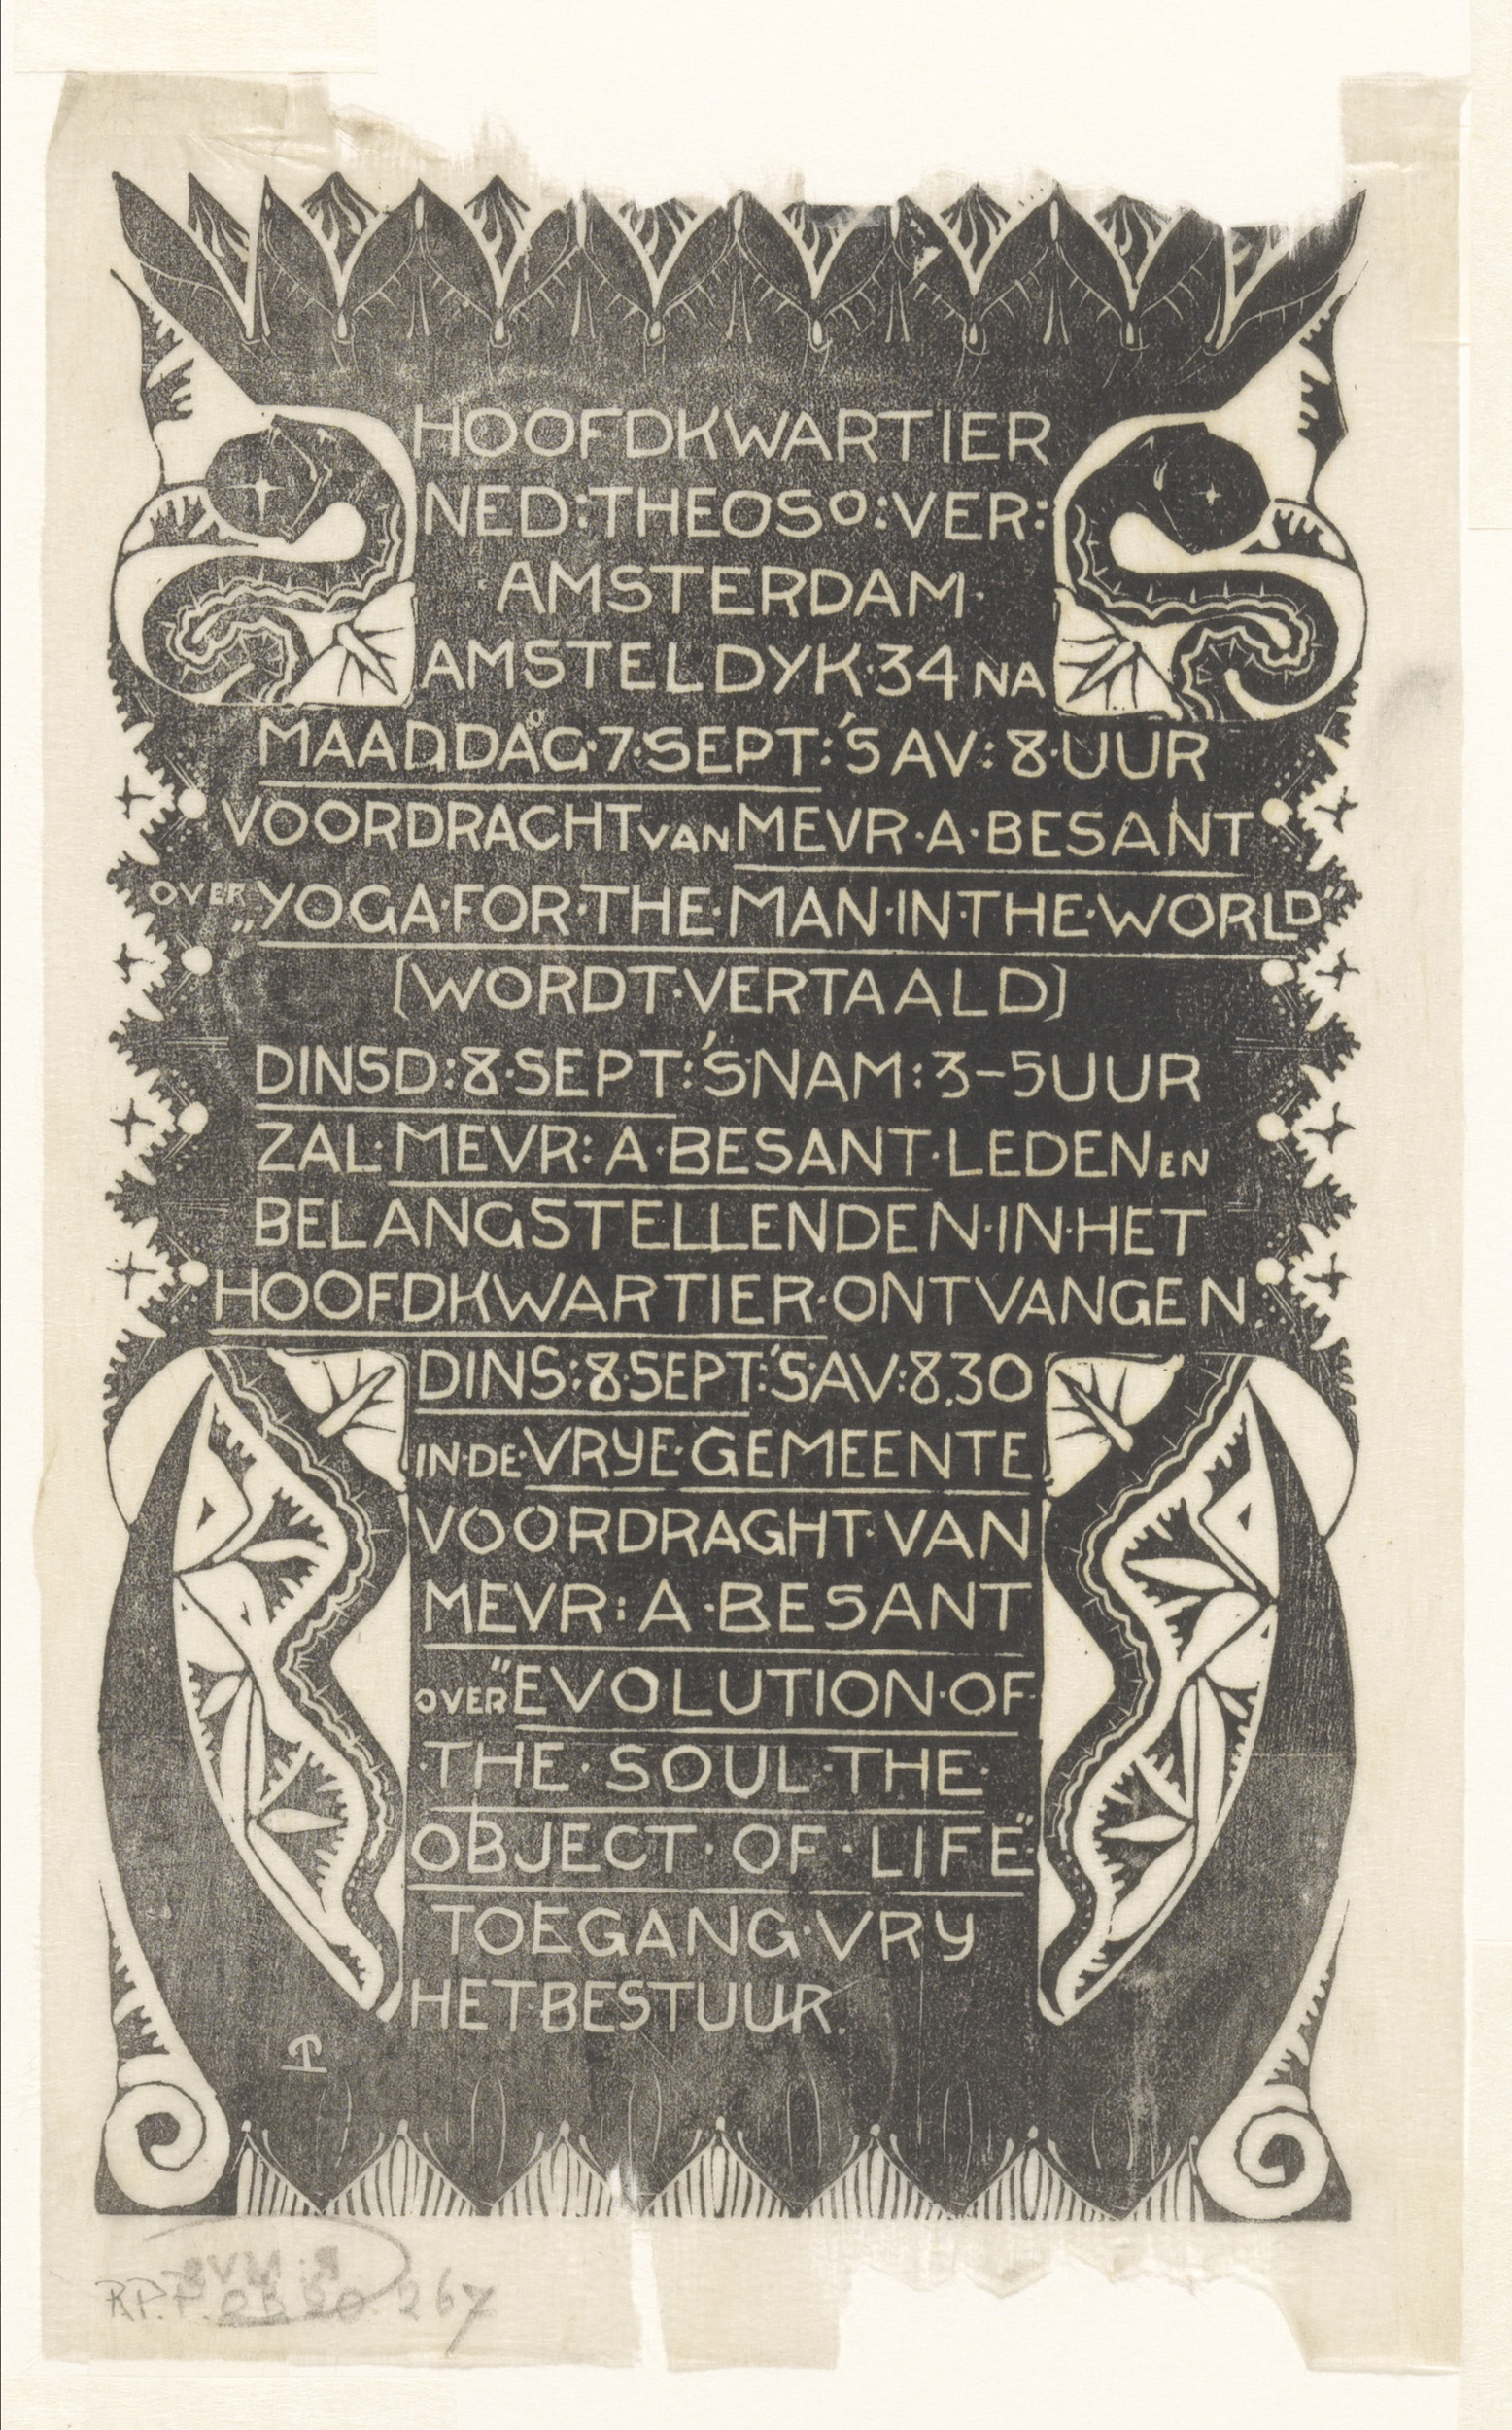 HOOFDKWARTIER
NED:THEOSO:VER:
AMSTERDAM·
AMSTELDYK·34 NA
MAADDAG·7·SEPT:'S AV:8·UUR
VOORDRACHT VAN MEVR·A·BESANT
OVER „YOGA·FOR·THE·MAN·IN·THE·WORLD"
(WORDT·VERTAALD)
DINSD:8·SEPT:'S·NAM:3-5UUR
ZAL·MEVR:A·BESANT·LEDEN EN
BELANGSTELLENDEN·IN·HET
HOOFDKWARTIER·ONTVANGEN.
DINS:8·SEPT:'S·AV:8.30
IN·DE·VRYE·GEMEENTE
VOORDRAGHT·VAN
MEVR:A·BESANT
OVER "EVOLUTION·OF·
·THE·SOUL·THE·
OBJECT·OF·LIFE"
TOEGANG·VRY
HET·BESTUUR.
R.P.T. OB 20.267